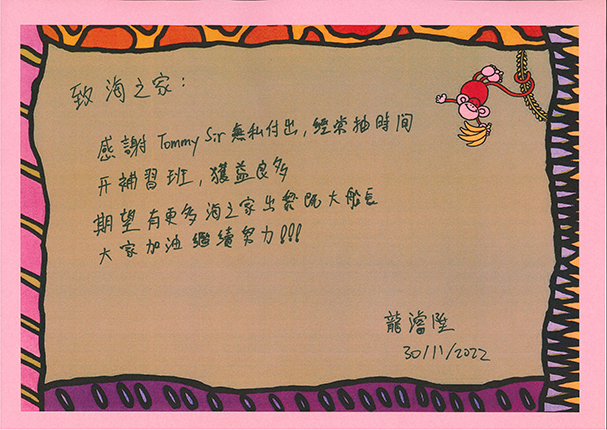 致 海之家:
感謝 Tommy Sir 無私付出, 經常抽時間
開補習班, 獲益良多
期望有更多海之家出黎既大船長
大家加油繼續努力!!!
龍濬陞
30/11/2022